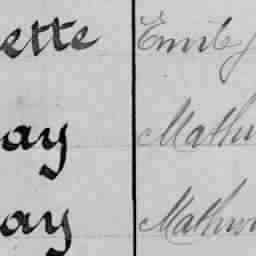 ette Emily
ay Mathu
ay Mathu